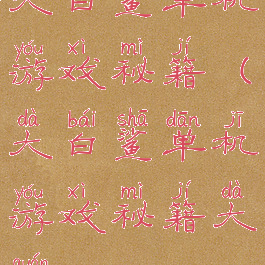 大白鲨单机
yóu xì mì jí
游戏秘籍（
dà bái shā dān jī
大白鲨单机
yóu xì mì jí dà
游戏秘籍大
quán